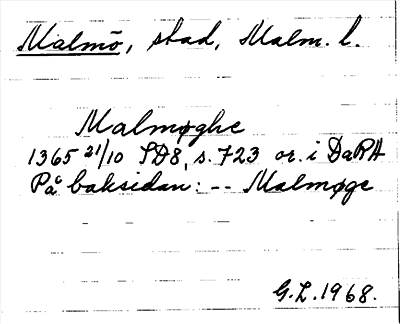 Malmö, stad, Malm. l.
Malmøghe
1365 21/10 SD8, s. 723 or. i DaRA
På baksidan: -- Malmøge
G.L. 1968.